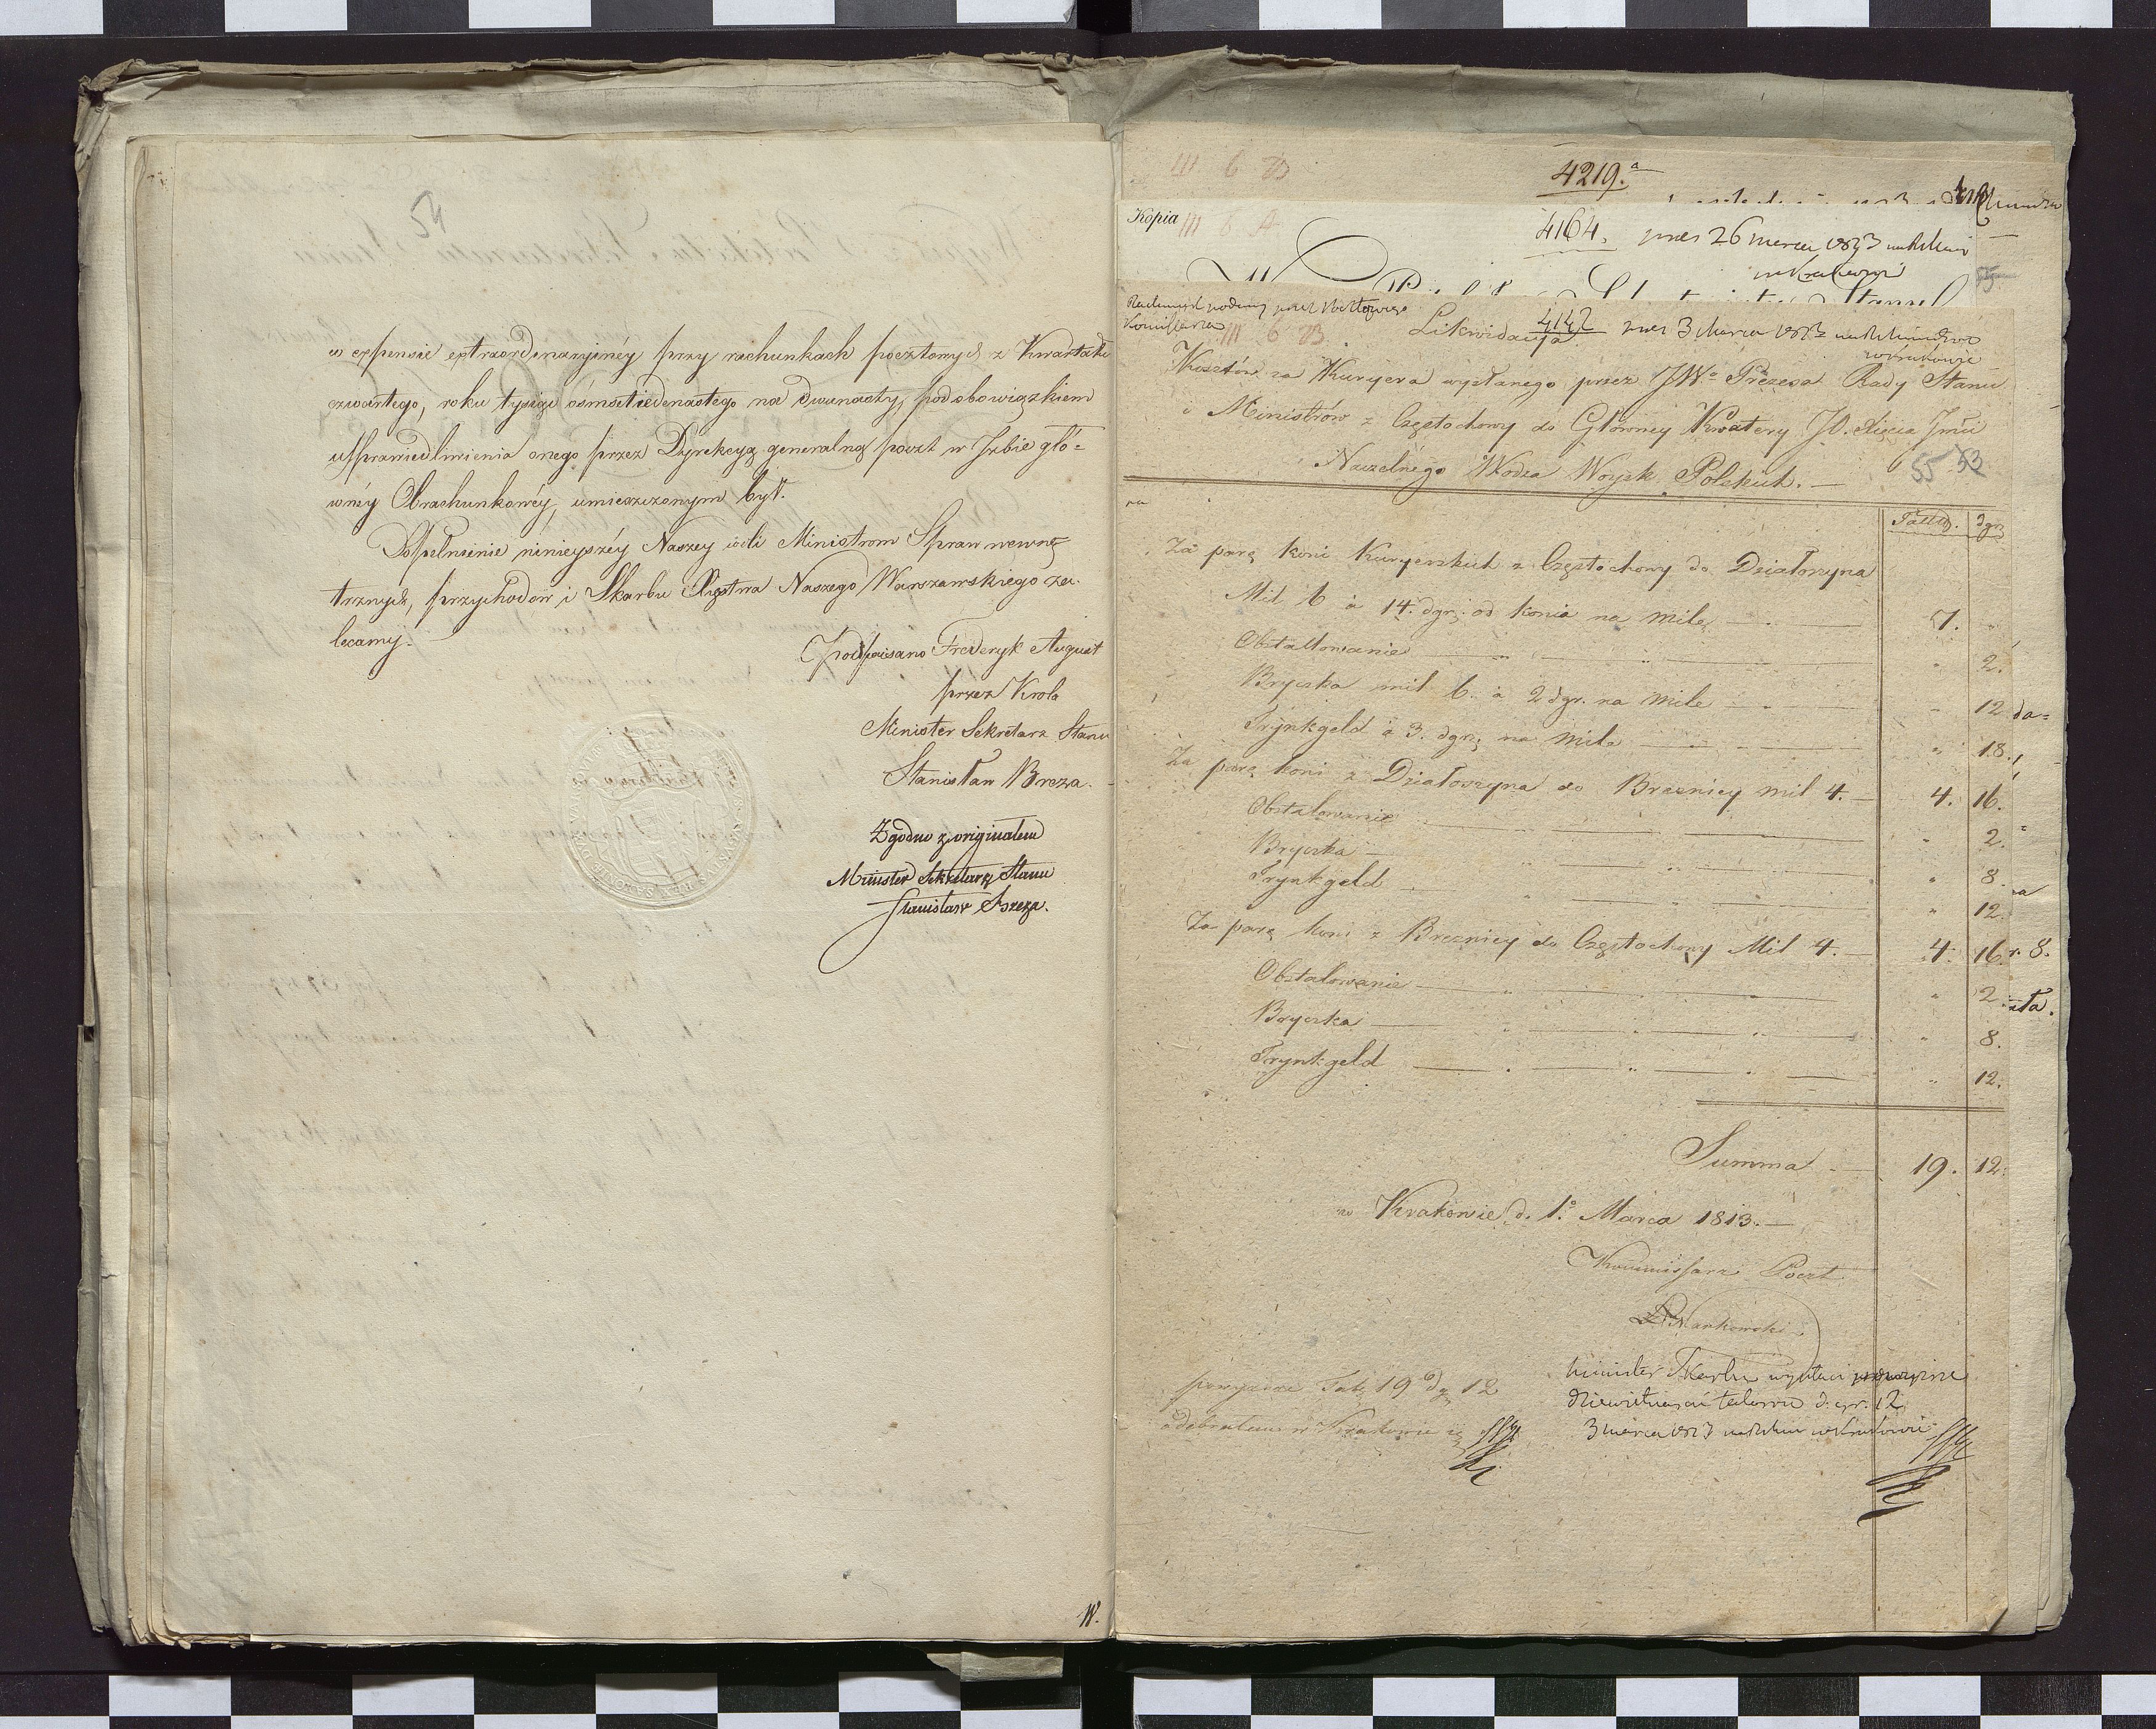 54
w expensie extraordynaryinéy przy rachunkach pocztowych z Kwartału
czwartego, roku tysiąc ośmset iedenastego na dwunasty, pod obowiązkiem
usprawiedliwienia onego przez Dyrekcyą generalną poczt w Izbie głó=
wnéy Obrachunkowéy umieszczonym był.
Dopełnienie ninieyszéy Naszey woli Ministrom Spraw wewnę
trznych, przychodów i Skarbu Xięstwa Naszego Warszawskiego za-
lecamy.
(podpisano Fryderyk August
przez Krola
Minister Sekretarz Stanu
Stanisław Breza.
Zgodno z originałem
Minister Sekretarz Stanu
Stanisław Breza.
W.
III 6 B
4219.a
Kopia
III 6 A
4164. prez 26 marca 1813
w Krakowie
55
Rachunek podany przez Pocztowego
Komissarza
III 6 B
Likwidacya
4142 prez 3 Marca 1813
w Krakowie
Kosztów za Kuryera wysłanego przez JWo Prezesa Rady Stanu
i Ministrow z Częstochowy do Główney Kwatery JO. Xięcia Jmci
Naczelnego Wodza Woysk Polskich.
55 53
Tallry. dgr.
Za parę koni Kuryerskich z Częstochowy do Działoszyna
Mil 6 à 14. dgr: od konia na milę 7.
Obstallowanie " 2.
Bryczka mil 6. à 2 dgr. na mile " 12
Trynkgeld à 3. dgr. na mile " 18.
Za parę koni z Działoszyna do Brzeznicy mil 4. 4. 16.
Obstalowanie " 2.
Bryczka " 8
Trynkgeld " 12.
Za parę koni z Brzeznicy do Częstochowy Mil 4. 4. 16
Obstalowanie " 2.
Bryczka " 8.
Trynkgeld " 12.
Summa 19. 12.
w Krakowie d. 1o Marca 1813.
Kommissarz Poczt
da=
r. 8.
ata.
powyzsze Tal. 19 dg 12
odebrałem w Krakowie
Minister Skarbu wypłaci powyzsze
dziewietnaście talarow d. gr. 12
3 marca 1813 w Krakowie